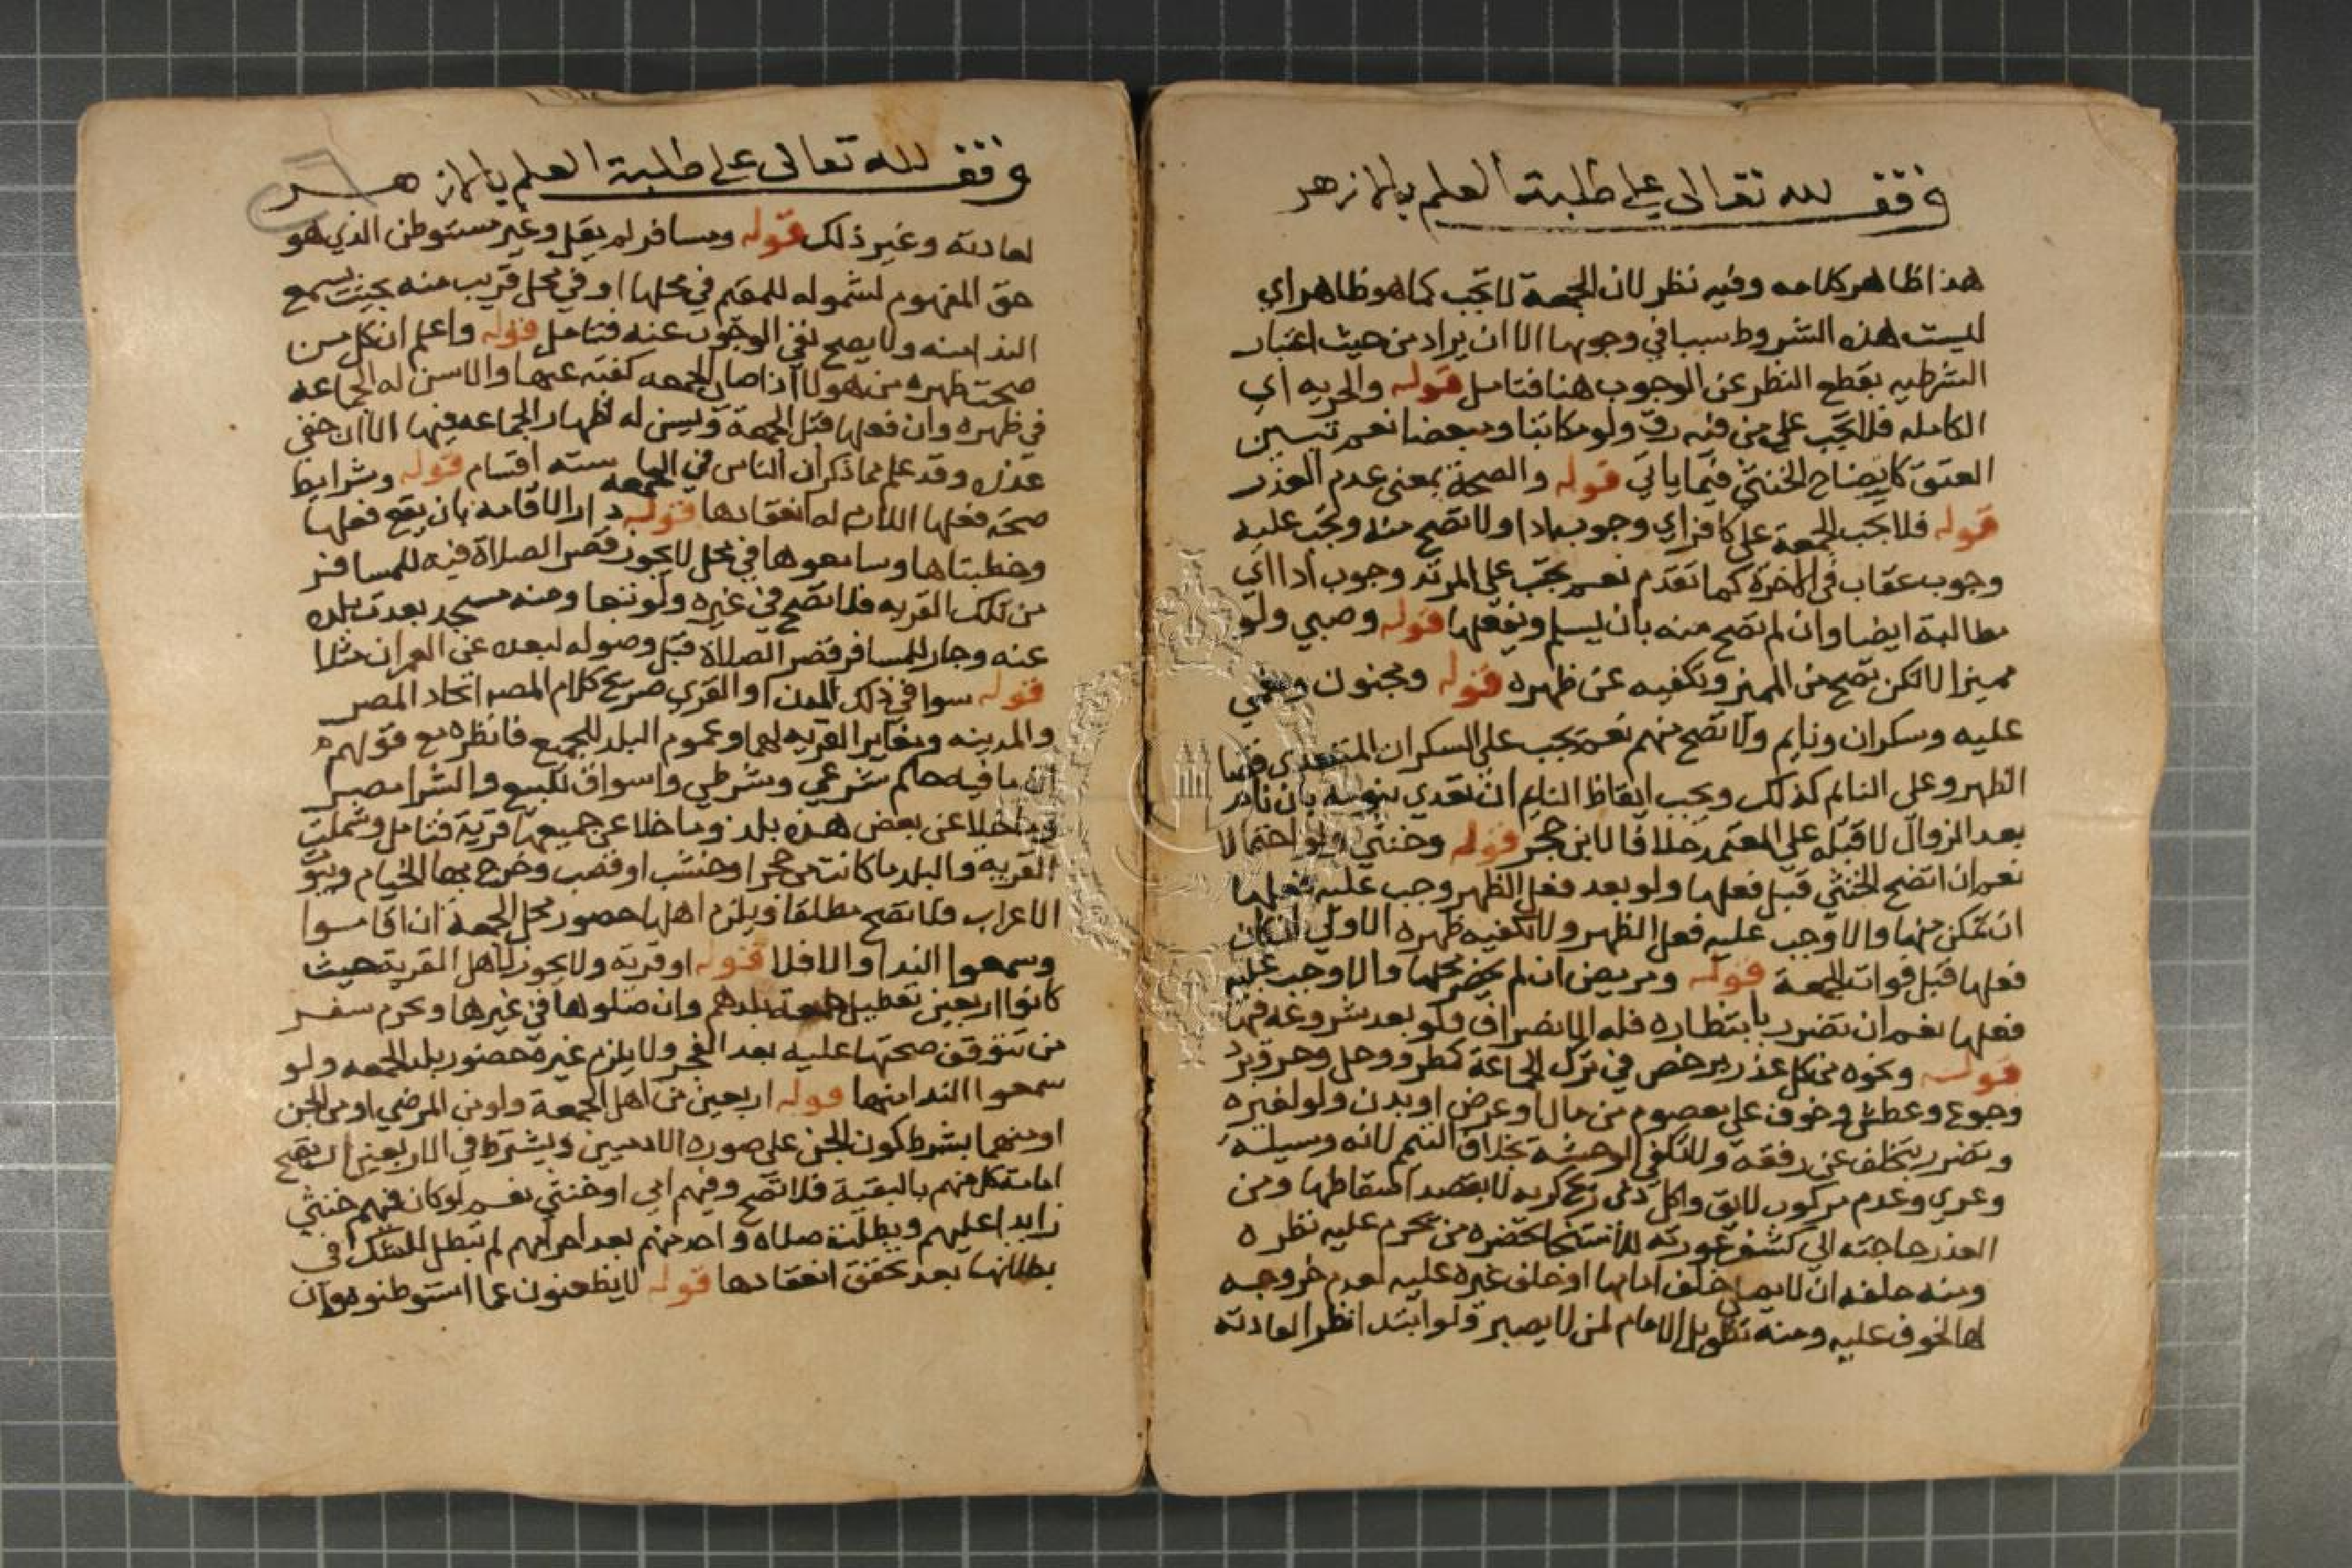 وقف لله تعالى على طلبة العلم بالازهر
هذا ظاهر كلامه وفيه نظر لان الجمعة لا تجب كما هو ظاهر اي
ليست هذه الشروط سببا في وجوبها الا ان يراد من حيث اعتبار
الشرطيه بقطع النظر عن الوجوب هنا فتامل قوله والحريه اي
الكامله فلا تجب على من فيه رق ولو مكاتبا ومبعضا نعم تبين
العتق كايضاح الخنثي فيما ياتي قوله والصحة بمعنى عدم العذر
قوله فلا تجب الجمعة على كافر اي وجوب اداولا تصح منه وتجب عليه
وجوب عقاب في الاخرة كما تقدم نعم تجب على المرتد وجوب ادا اي
مطالبة ايضا وان لم تصح منه بان يسلم ويفعلها قوله وصبي ولو
مميزا لكن تصح من المميز وتكفيه عن ظهره قوله ومجنون ومغمي
عليه وسكران ونايم ولا تصح منهم نعم تجب على السكران المتعدي فيها
الظهر وعلى النايم كذلك ويجب ايقاظ النايم ان تعدي بنومه بان نام
بعد الزوال لا قبله على المعتمد خلافا لابن حجر قوله وخنثي ولو احتمالا
نعم ان اتضح الخنثي قبل فعلها ولو بعد فعل الظهر وجب عليه فعلها
ان تمكن منها والا وجب عليه فعل الظهر ولا تكفيه ظهره الاولي ان كان
فعلها قبل فوات الجمعة قوله ومريض ان لم يحضر محلها والا وجب عليه
فعلها نعم ان تضرر بانتظاره فله الانصراف ولو بعد شروعه فيها
قوله ونحوه من كل عذر يرخص في ترك الجماعة كمطر ووحل وحر وبرد
وجوع وعطش وخوف على معصوم من مال او عرض او بدن ولو لغيره
وتضرر بتخلف عن رفقه ولا تكفي الوحشة بخلاف التيمم لانه وسيلة
وعري وعدم مركوب لايق واكل ذي ريح كريه لا بقصد اسقاطها ومن
العذر حاجته الي كشف عورته للاستنجا بحضرة من يحرم عليه نظره
ومنه حلفه ان لا يصلي خلف امامها او حلف غيره عليه لعدم خروجه
لها لخوف عليه ومنه تطويل الامام لمن لا يصبر ولو ابتدا نظرا لعادته
وقف لله تعالى على طلبة العلم بالازهر
لعادته وغير ذلك قوله ومسافر لم يقل وغير مستوطن الذي هو
حق المفهوم لشموله للمقيم في محلها او في محل قريب منه بحيث يسمع
الندا منه ولا يصح نفي الوجوب عنه فتامل قوله واعلم ان كل من
صحت ظهره من هولا اذا صلى الجمعه كفته عنها والا سن له الجماعه
في ظهره وان فعلها قبل الجمعة ويسن له اظهار الجماعه فيها الا ان خفي
عذره وقد علم مما ذكر ان الناس في الجمعه سته اقسام قوله وشرايط
صحة فعلها اللازم له انعقادها قوله دار الاقامه بان يقع فعلها
وخطبتاها وسامعوها في محل لا يجوز قصر الصلاة فيه للمسافر
من تلك القريه فلا تصح في غيره ولو تبعا ومنه مسجد بعدت بلده
عنه وجاز للمسافر قصر الصلاة قبل وصوله لبعده عن العمران مثلا
قوله سوا في ذلك المدن او القري صريح كلام المص اتحاد المصر
والمدينه وتغاير القريه لهما وعموم البلد للجميع فانظره مع قولهم
ان ما فيه حاكم شرعي وشرطي واسواق للبيع والشرا مصر
وما خلا عن بعض هذه بلد وما خلا عن جميعها قرية فتامل وشملت
القريه والبلد ما كانت من حجر او خشب او قصب وخرج بها الخيام وبيوت
الاعراب فلا تصح مطلقا ويلزم اهلها حضور محل الجمعة ان اقاموا
وسمعوا الندا والا فلا قوله او قرية ولا يجوز لاهل القرية حيث
كانوا اربعين تعطيل جمعة بلدهم وان صلوها في غيرها ويحرم سفر
من تتوقف صحتها عليه بعد الفجر ولا يلزم غيره حضور بلد الجمعه ولو
سمعوا الندا منها قوله اربعين من اهل الجمعة ولو من المرضي او من الجن
او منهما بشرط كون الجن على صورة الادميين ويشترط في الاربعين ان تصح
امامة كل منهم بالبقية فلا تصح وفيهم امي او خنثي نعم لو كان فيهم خنثي
زايدا عليهم وبطلت صلاة واحد منهم بعد احرامهم لم تبطل للشك في
بطلانها بعد تحقق انعقادها قوله لا يظعنون عما استوطنوه وان